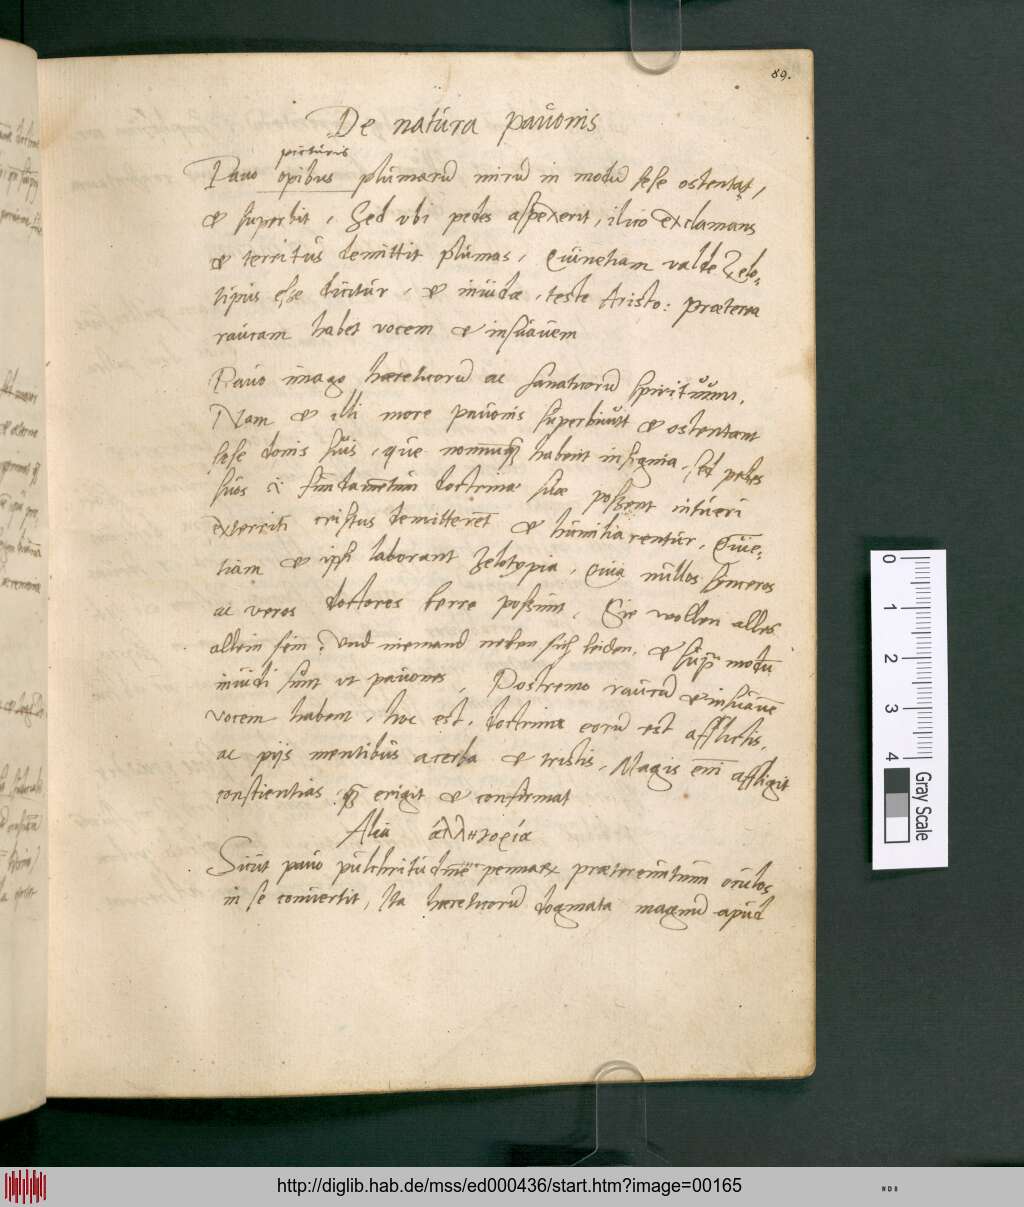 89.
De natura pavonis
picturis
Pavo opibus plumarū mirū in modū sese ostentat,
& superbit, Sed ubi pedes aspexerit, ilico exclamans
& territus demittit plumas, Quinetiam valde Zelo-
tipus esse dicitur, & invidæ, teste Aristo: præterea
raucam habet vocem & insuavem
Pavo imago hæreticorū ac fanaticorū spirituum,
Nam et illi more pavonis superbiunt & ostentant
sese donis suis, que nonnunq̃ habent insignia, sed pedes
suos i fundamentum doctrinæ suæ possent intueri
exterriti cristas demitterēt & humiliarentur, Quine-
tiam & ipsi laborant Zelotypia, Quia nullos synceros
ac veros doctores ferre possunt, Sie wollen alles
allein sein, Und niemand neben sich leiden, & supra modū
invidi sunt ut pavones, Postremo raucū & insuavē
vocem habent, hoc est, doctrina eorū est afflictis,
ac pijs mentibus acerba & tristis, Magis eni affligit
conscientias, q̃ erigit & confirmat
Alia ἀλληγορία
Sicut pavo pulchritudine pennarum prætereuntium oculos
in se convertit, Ita hæreticorū dogmata magnū apud
0
1
2
3
4
Gray Scale
http://diglib.hab.de/mss/ed000436/start.htm?image=00165